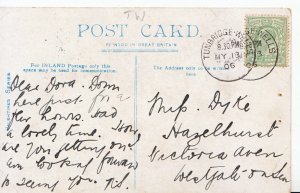 TW
POST CARD.
PRINTED IN GREAT BRITAIN.
For INLAND Postage only this space may be used for communication.
TUNBRIDGE WELLS
8.30 PM
MY 19
06
Dear Dora. Down
here just for a
few hours. Had
a lovely time. How
are you getting on.
am looking forward
to seeing you.
Miss Dyke
Hazelhurst
Victoria Aven
Westgate on Sea